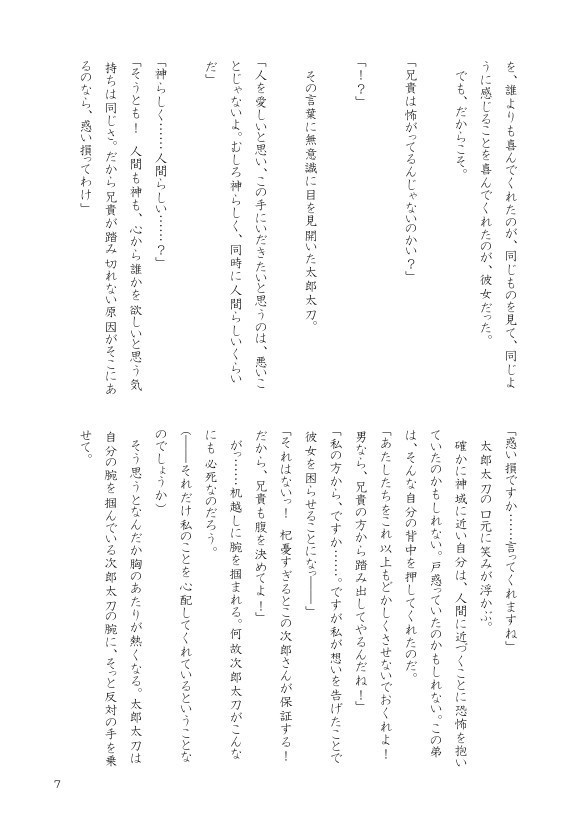 を、誰よりも喜んでくれたのが、同じものを見て、同じよ
うに感じることを喜んでくれたのが、彼女だった。
でも、だからこそ。
「兄貴は怖がってるんじゃないのかい？」
「！？」
その言葉に無意識に目を見開いた太郎太刀。
「人を愛しいと思い、この手にいだきたいと思うのは、悪いこ
とじゃないよ。むしろ神らしく、同時に人間らしいくらい
だ」
「神らしく……人間らしい……？」
「そうとも！　人間も神も、心から誰かを欲しいと思う気
持ちは同じさ。だから兄貴が踏み切れない原因がそこにあ
るのなら、惑い損ってわけ」
「惑い損ですか……言ってくれますね」
太郎太刀の口元に笑みが浮かぶ。
確かに神域に近い自分は、人間に近づくことに恐怖を抱い
ていたのかもしれない。戸惑っていたのかもしれない。この弟
は、そんな自分の背中を押してくれたのだ。
「あたしたちをこれ以上もどかしくさせないでおくれよ！
男なら、兄貴の方から踏み出してやるんだね！」
「私の方から、ですか……。ですが私が想いを告げたことで
彼女を困らせることになっ――」
「それはないっ！　杞憂すぎるとこの次郎さんが保証する！
だから、兄貴も腹を決めてよ！」
がっ……机越しに腕を掴まれる。何故次郎太刀がこんな
にも必死なのだろう。
（――それだけ私のことを心配してくれているということな
のでしょうか）
そう思うとなんだか胸のあたりが熱くなる。太郎太刀は
自分の腕を掴んでいる次郎太刀の腕に、そっと反対の手を乗
せて。
7